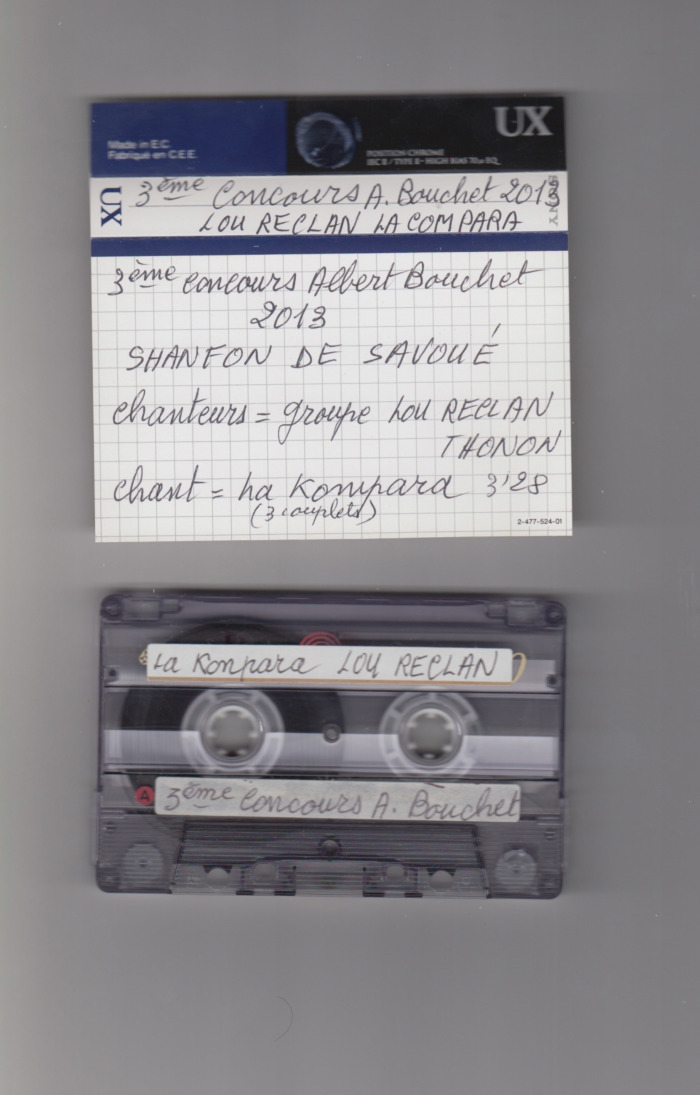 UX
Made in E.C.
Fabriqué en C.E.E.
POSITION CHROME
IEC II / TYPE II - HIGH BIAS 70 µs EQ
UX
3ème Concours A. Bouchet 2013
LOU RECLAN LA COMPARA
3ème concours Albert Bouchet
2013
SHANFON DE SAVOUÉ
chanteurs = groupe LOU RECLAN
THONON
chant = La Kompara 3'28
(3 couplets)
2-477-524-01
La Konpara LOU RECLAN
A
3ème Concours A. Bouchet